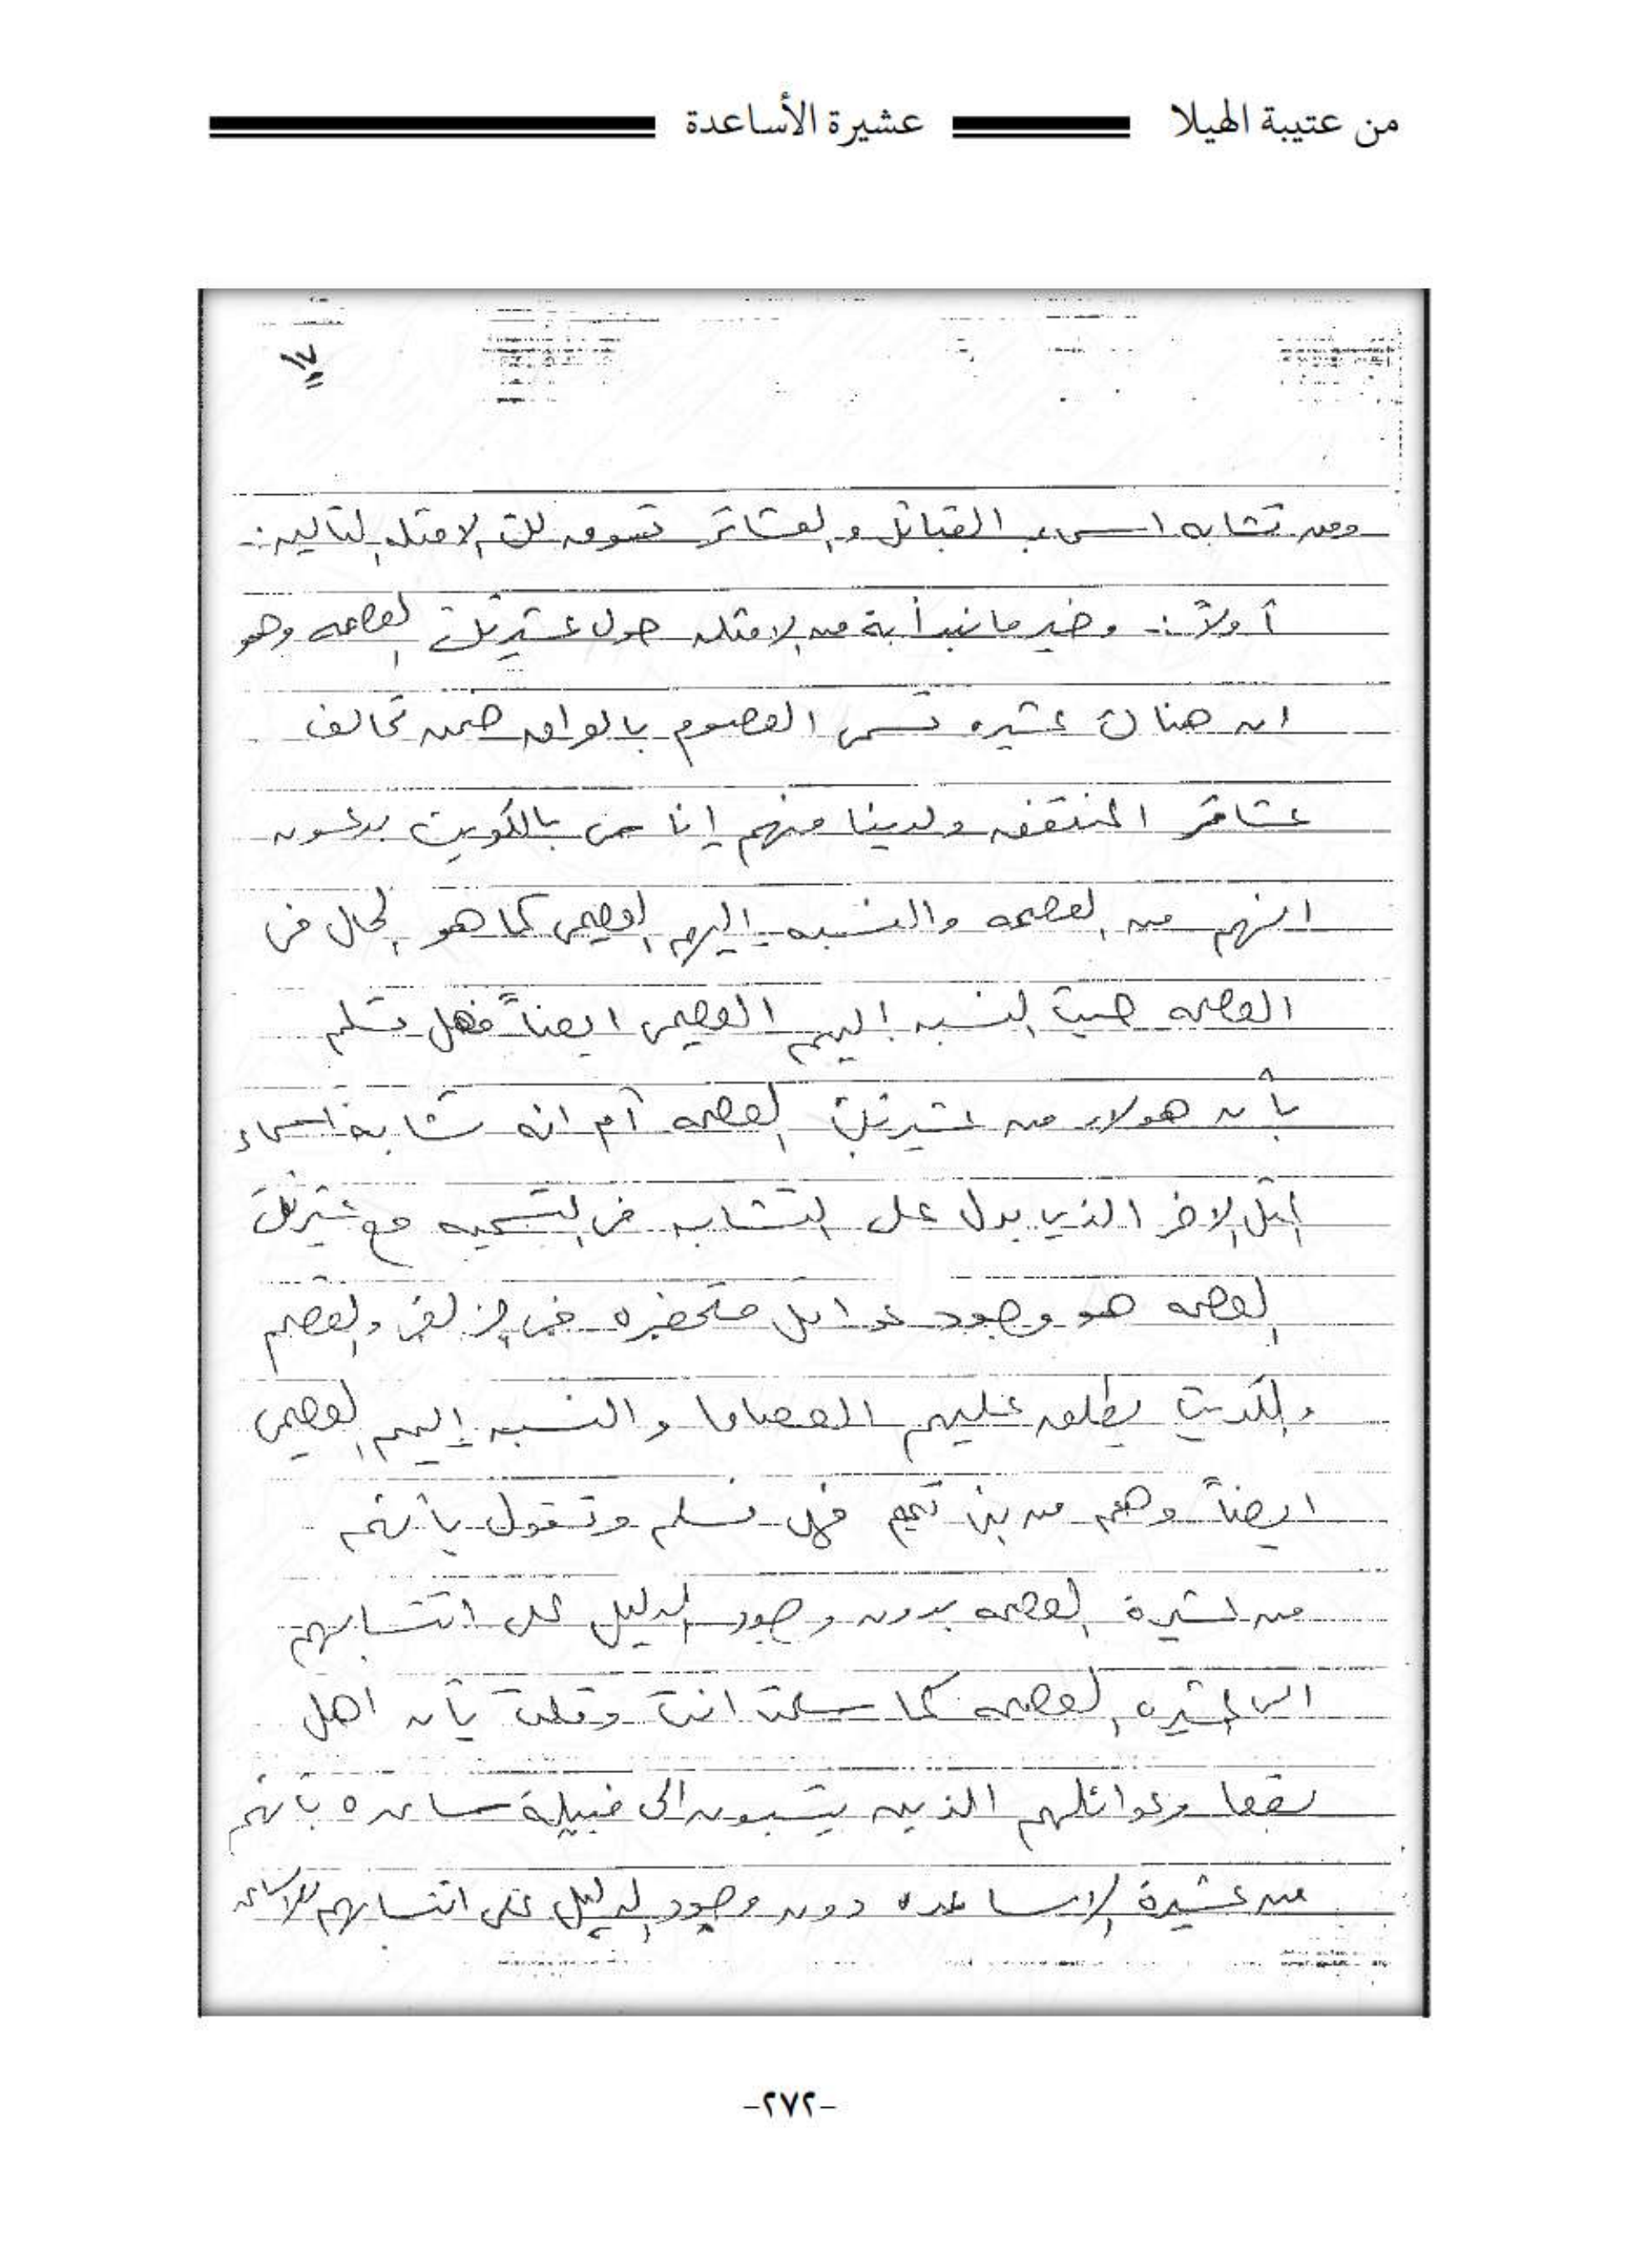 من عتيبة الهيلا عشيرة الأساعدة
١٧
ومن تشابه اسماء القبائل والعشائر نسوق لك الامثله التاليه :-
أولاً :- وخير ما نبدأ بة من الامثله حول عشيرتك العصمه وهو
ان هناك عشيره تسمى العصوم بالعراق ضمن تحالف
عشائر المنتفق ولدينا منهم إناس بالكويت يدعون
انهم من العصمه والنسبه إليهم العصيمي كما هو الحال في
العصمه حيث النسبه إليهم العصيمي ايضاً فهل تسلم
بأن هولاء من عشيرتك العصمه أم انه تشابة اسماء
المثل الاخر الذي يدل على التشابه في التسميه مع عشيرتك
العصمه هو وجود عوائل متحضره في الزلفي والقصيم
والكويت يطلق عليهم العصاما والنسبه إليهم العصيمي
ايضاً وهم من بني تميم فهل تسلم وتقول بأنهم
من عشيرة العصمه بدون وجود الدليل على انتسابهم
الى عشيره العصمه كما سلمت انت وقلت بأن اهل
بقعا وعوائلهم الذين ينتسبون الى قبيلة ساعده بأنهم
من عشيرة الاساعده دون وجود الدليل على انتسابهم للاساعده
-٢٧٢-